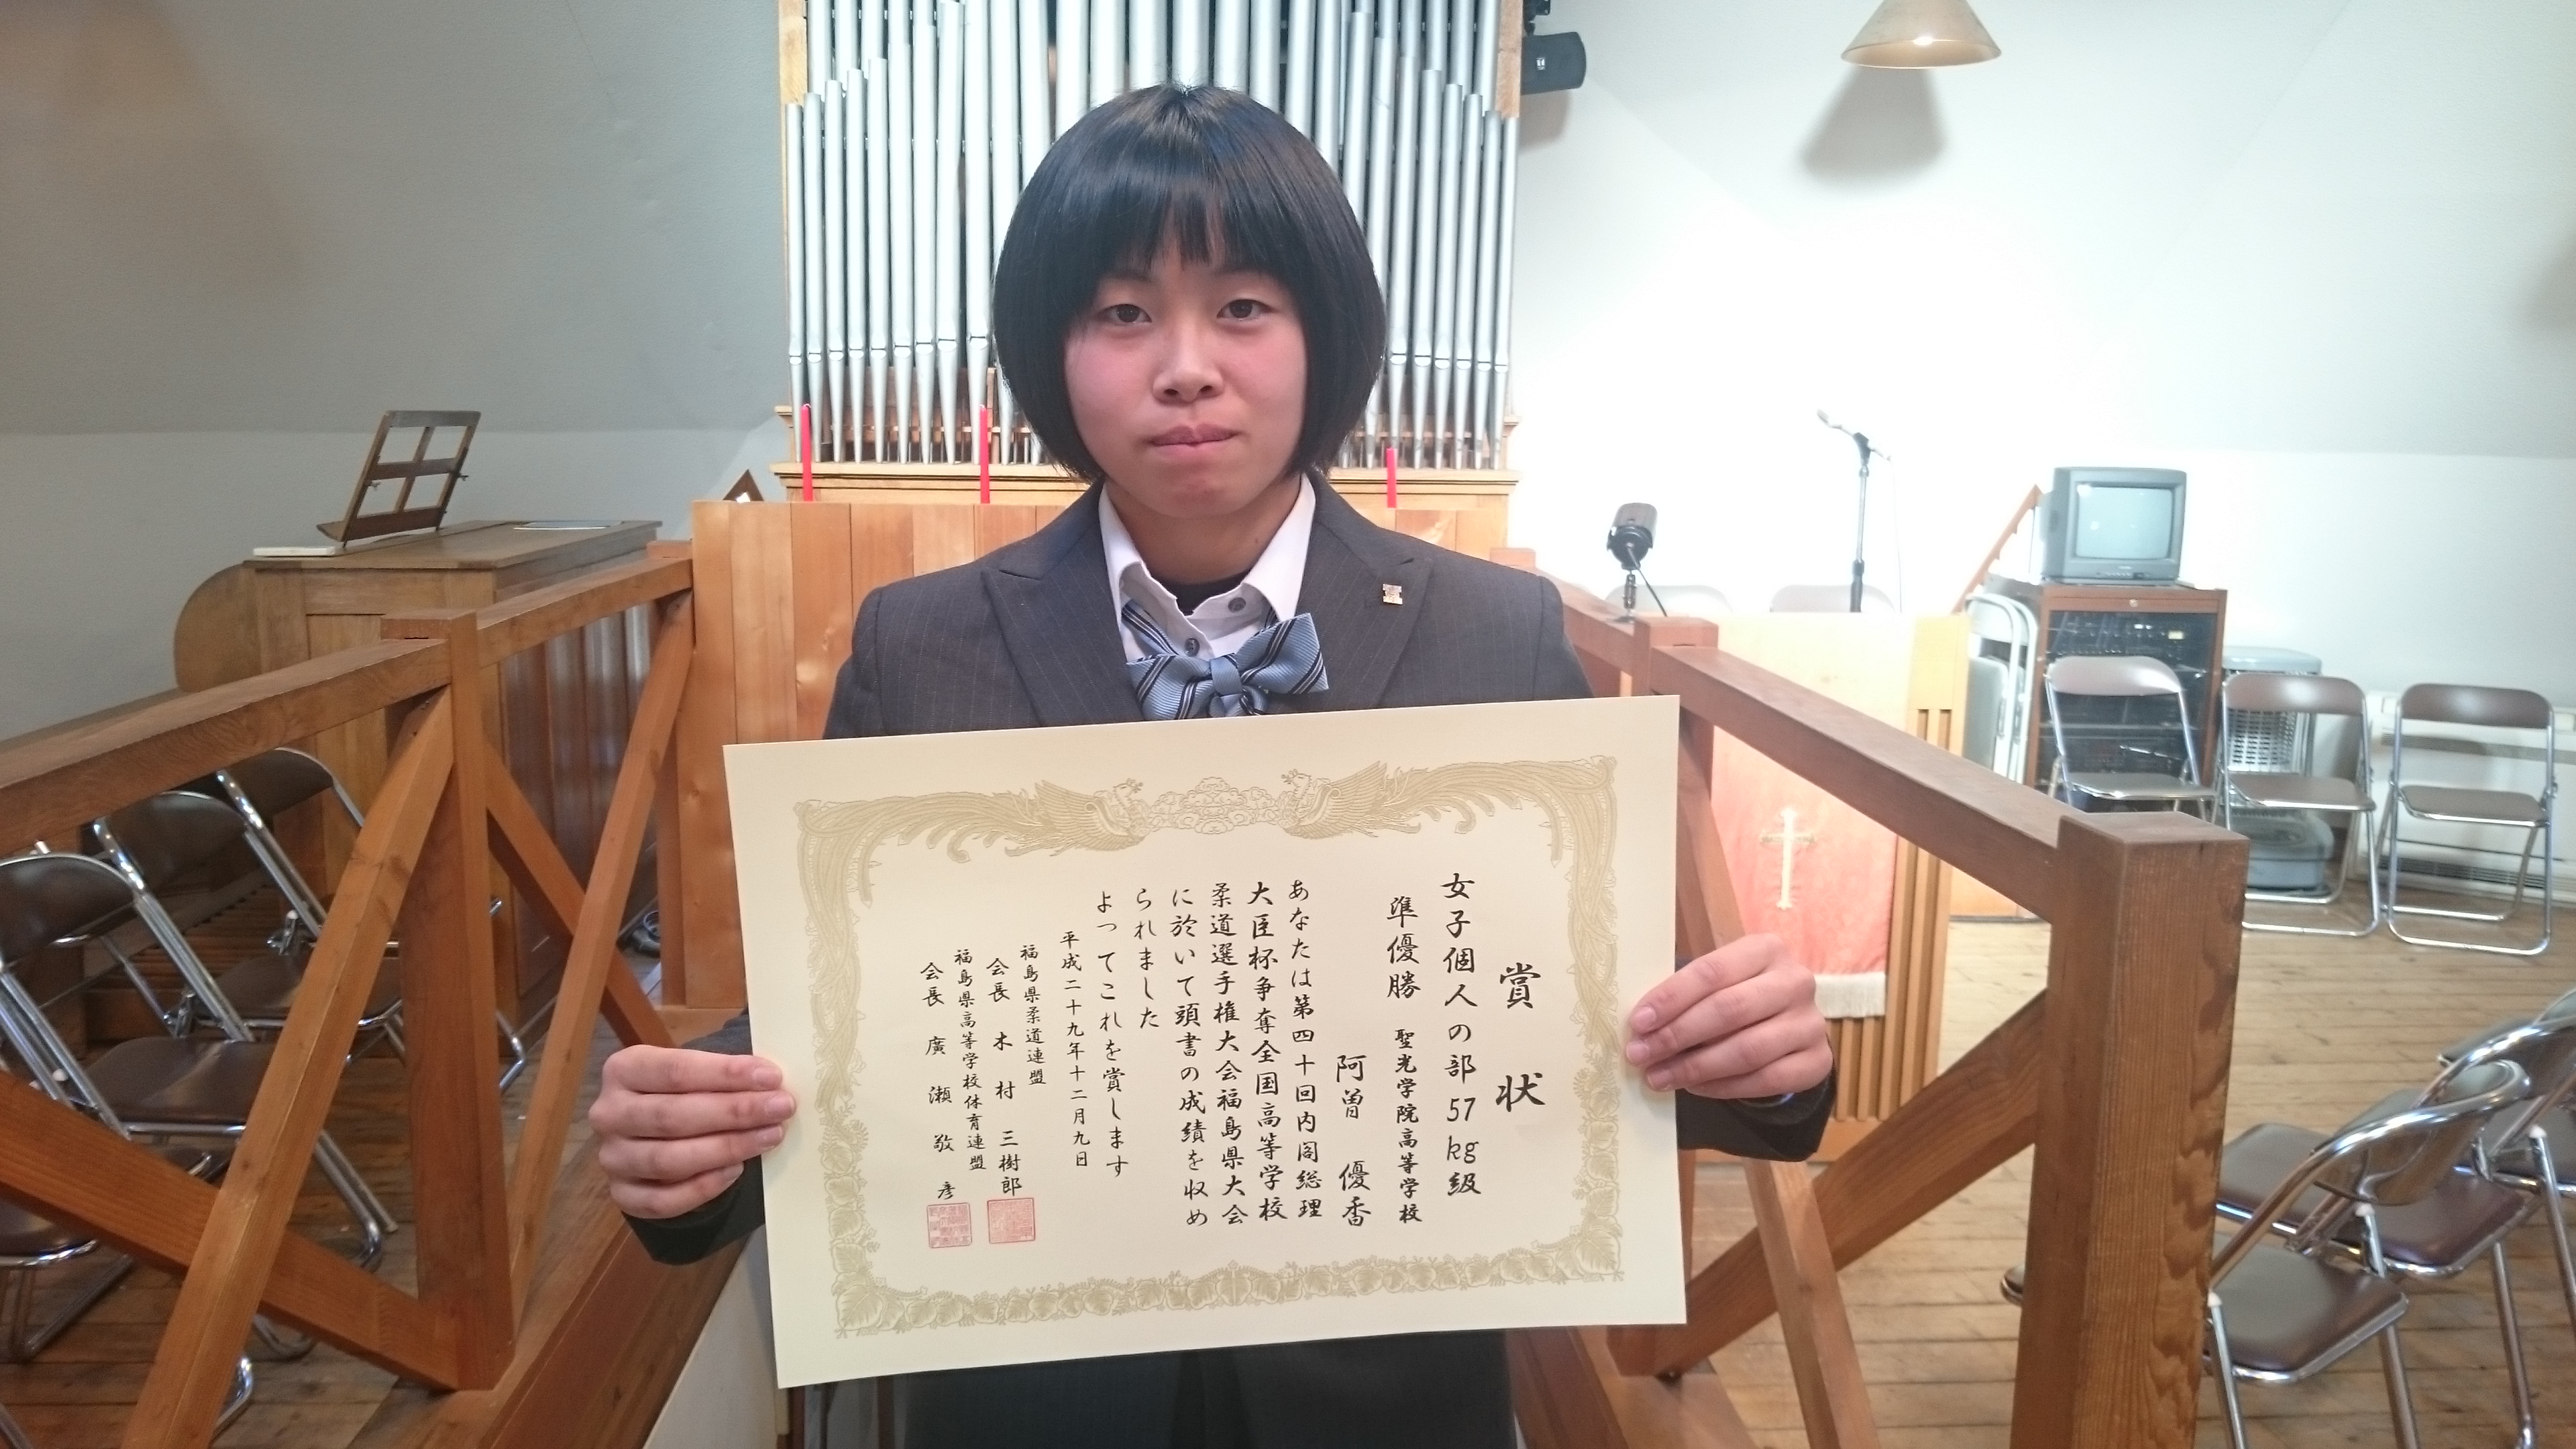 賞状
女子個人の部 57kg級
準優勝 聖光学院高等学校
阿曽 優香
あなたは第四十回内閣総理
大臣杯争奪全国高等学校
柔道選手権大会福島県大会
に於いて頭書の成績を収め
られました
よってこれを賞します
平成二十九年十二月九日
福島県柔道連盟
会長 木村三樹郎
福島県高等学校体育連盟
会長 廣瀬敬彦